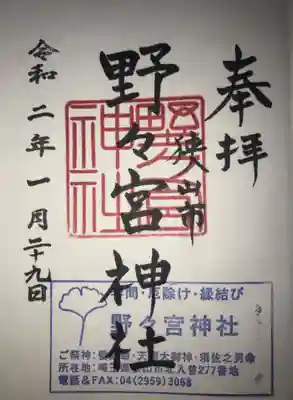 奉拝
狭山市
野々宮神社
令和二年一月二十九日
間・厄除け・縁結び
野々宮神社
ご祭神：
・天照大御神・須佐之男命
所在地：埼玉県狭山市北入曽277番地
電話&FAX：04(2959)3068